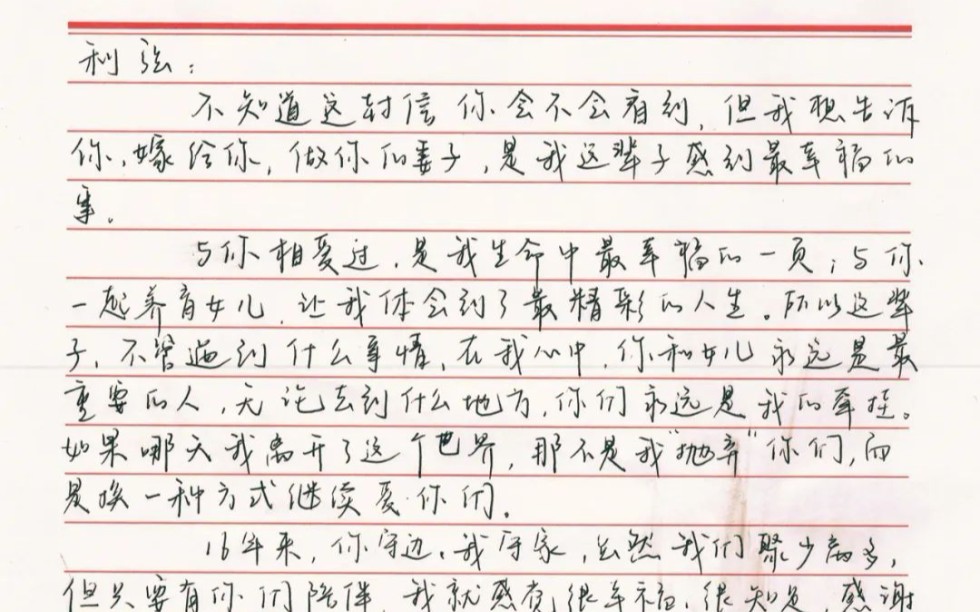 利弦：
不知道这封信你会不会看到，但我想告诉
你，嫁给你，做你的妻子，是我这辈子感到最幸福的
事。
与你相爱过，是我生命中最幸福的一页；与你
一起养育女儿，让我体会到了最精彩的人生。所以这辈
子，不管遇到什么事情，在我心中，你和女儿永远是最
重要的人，无论去到什么地方，你们永远是我的牵挂。
如果哪天我离开了这个世界，那不是我“抛弃”你们，而
是换一种方式继续爱你们。
16年来，你守边，我守家，虽然我们聚少离多，
但只要有你们陪伴，我就感觉很幸福、很知足，感谢